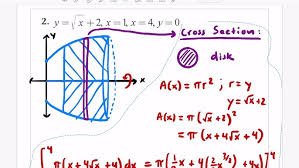 2. y = √x + 2, x = 1, x = 4, y = 0
Cross Section:
disk
y
x
A(x) = πr² ; r = y
y = √x + 2
A(x) = π(√x + 2)²
= π(x + 4√x + 4)
4 π(x + 4√x + 4)dx = π(½x + 4(⅔x^3/2) + 4x)]4